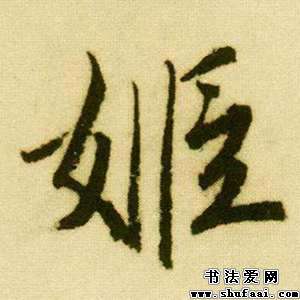 姬
书法爱网
www.shufaai.com